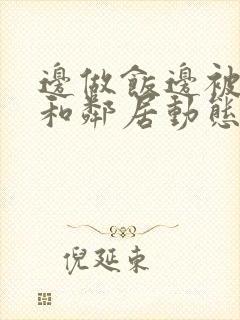 邊做飯邊被
和鄰居動態
倪延東